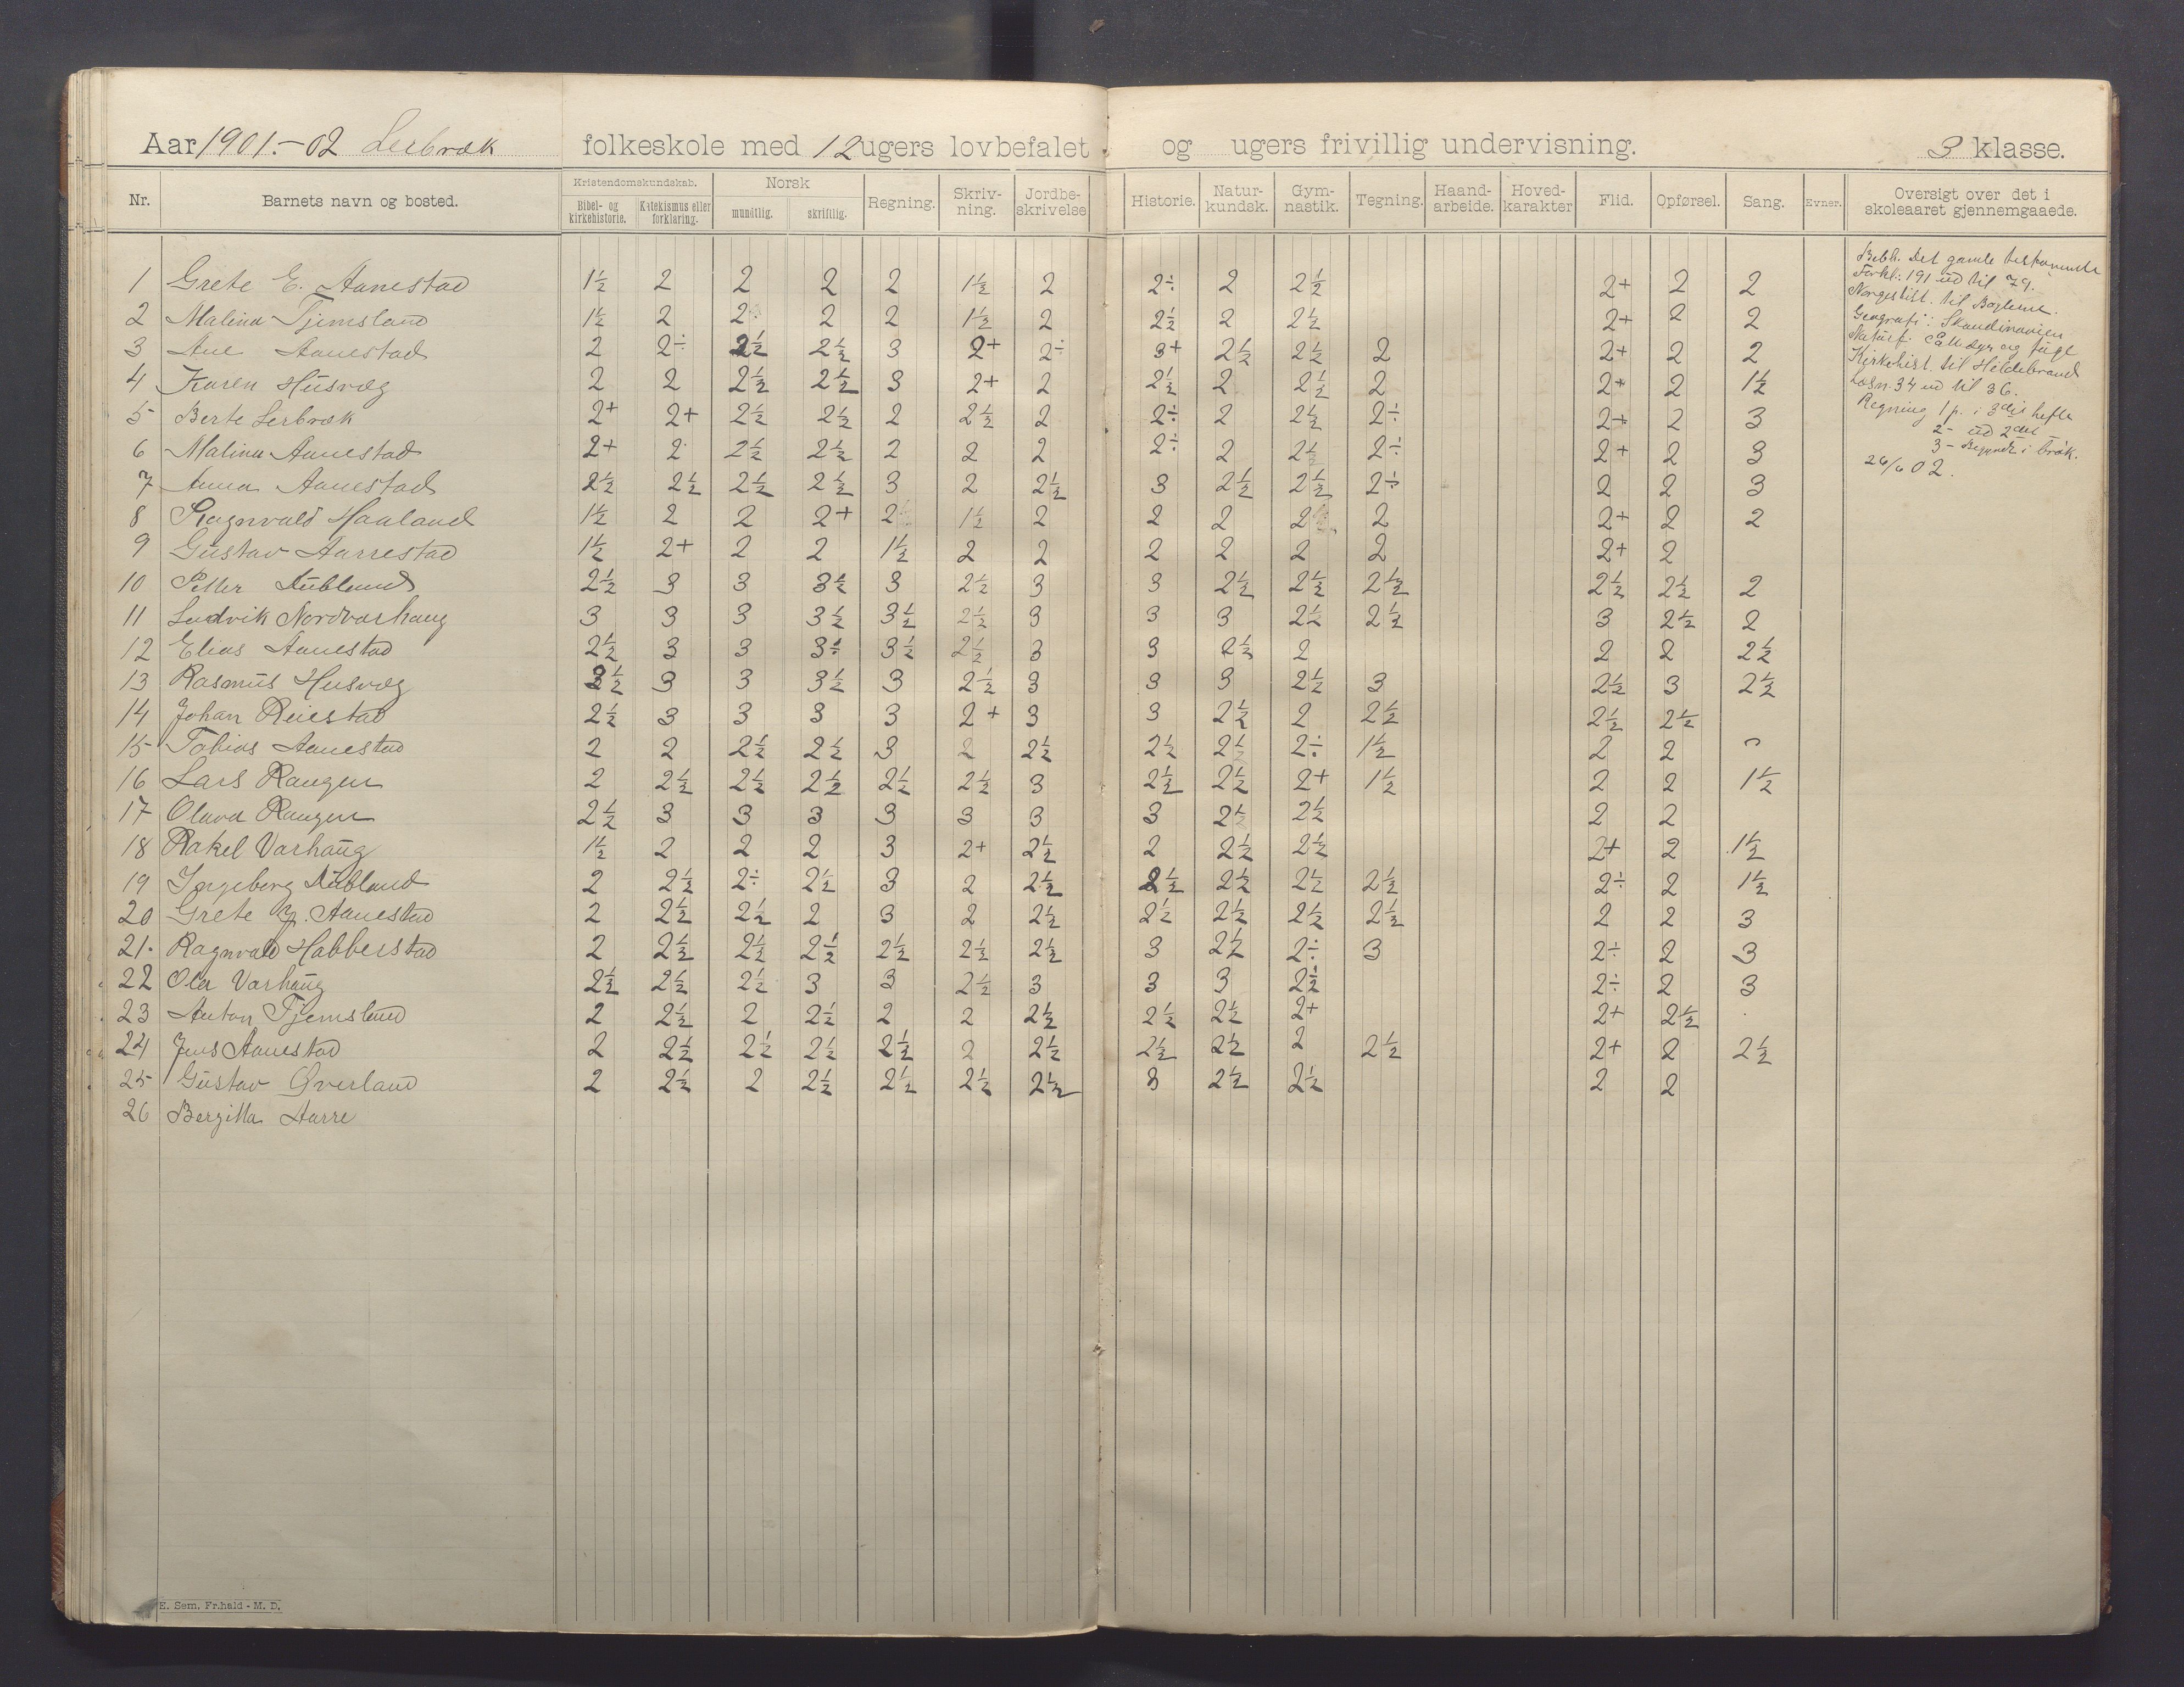 Aar 1901.-02 Lerbræk folkeskole med 12 ugers lovbefalet og ugers frivillig undervisning. 3 klasse.
Nr. Barnets navn og bosted. Kristendomskundskab. Bibel- og kirkehistorie. Katekismus eller forklaring. Norsk mundtlig. skriftlig. Regning. Skriv-ning. Jordbe-skrivelse Historie. Natur-kundsk. Gym-nastik. Tegning. Haand-arbeide. Hoved-karakter Flid. Opførsel. Sang. Evner. Oversigt over det i skoleaaret gjennemgaaede.
1 Grete E. Aanestad 1½ 2 2 2 2 1½ 2 2÷ 2 2½ 2+ 2 2
2 Malina Tjemsland 1½ 2 2 2 2 1½ 2 2½ 2 2½ 2+ 2 2
3 Ane Aanestad 2 2÷ 2½ 2½ 3 2+ 2÷ 3+ 2½ 2½ 2 2+ 2 2
4 Karen Husvæg 2 2 2½ 2½ 3 2+ 2 2½ 2 2½ 2 2+ 2 1½
5 Berte Lerbræk 2+ 2+ 2½ 2½ 2 2½ 2 2÷ 2 2½ 2÷ 2+ 2 3
6 Malina Aanestad 2+ 2 2½ 2½ 2 2 2 2÷ 2 2½ 2÷ 2+ 2 3
7 Anna Aanestad 2½ 2½ 2½ 2½ 3 2 2½ 3 2½ 2½ 2÷ 2 2 3
8 Ragnvald Haaland 1½ 2 2 2+ 2 1½ 2 2 2 2 2 2+ 2 2
9 Gustav Aarrestad 1½ 2+ 2 2 1½ 2 2 2 2 2 2 2+ 2
10 Petter Dubland 2½ 3 3 3½ 3 2½ 3 3 2½ 2½ 2½ 2½ 2½ 2
11 Ludvik Nordvarhaug 3 3 3 3½ 3½ 2½ 3 3 3 2½ 2½ 3 2½ 2
12 Elias Aanestad 2½ 3 3 3÷ 3½ 2½ 3 3 2½ 2 2 2 2½
13 Rasmus Husvæg 3½ 3 3 3½ 3 2½ 3 3 3 2½ 3 2½ 3 2½
14 Johan Reiestad 2½ 3 3 3 3 2+ 3 3 2½ 2 2½ 2½ 2½
15 Tobias Aanestad 2 2 2½ 2½ 3 2 2½ 2½ 2½ 2÷ 1½ 2 2
16 Lars Raugen 2 2½ 2½ 2½ 2½ 2½ 3 2½ 2½ 2+ 1½ 2 2 1½
17 Olava Raugen 2½ 3 3 3 3 3 3 3 2½ 2½ 2 2
18 Rakel Varhaug 1½ 2 2 2 3 2+ 2½ 2 2½ 2½ 2+ 2 1½
19 Ingeborg Dubland 2 2½ 2÷ 2½ 3 2 2½ 2½ 2½ 2½ 2½ 2÷ 2 1½
20 Grete Aanestad 2 2½ 2½ 2 3 2 2½ 2½ 2½ 2½ 2½ 2 2 3
21. Ragnvald Habberstad 2 2½ 2½ 2½ 2½ 2½ 2½ 3 2½ 2÷ 3 2÷ 2 3
22 Ola Varhaug 2½ 2½ 2½ 3 3 2½ 3 3 3 2½ 2÷ 2 3
23 Anton Tjemsland 2 2½ 2 2½ 2 2 2½ 2½ 2½ 2+ 2+ 2½
24 Jens Aanestad 2 2½ 2½ 2½ 2½ 2 2½ 2½ 2½ 2 2½ 2+ 2 2½
25 Gustav Øverland 2 2½ 2 2½ 2½ 2½ 2½ 3 2½ 2½ 2 2
26 Bergitta Aarre
Bibh. Det gamle testamente
Forkl: 191 ud til 79.
Norgeshist. til Baglerne.
Geografi: Skandinavien
Naturf: Pattedyr og fugl
Kirkehist. til Hildebrand
Læsn. 34 ud til 36.
Regning 1 p. i 3die hefte
2- ud 2det
3- Begyndt i brøk.
26/6 02.
E. Sem, Fr.hald - M. D.